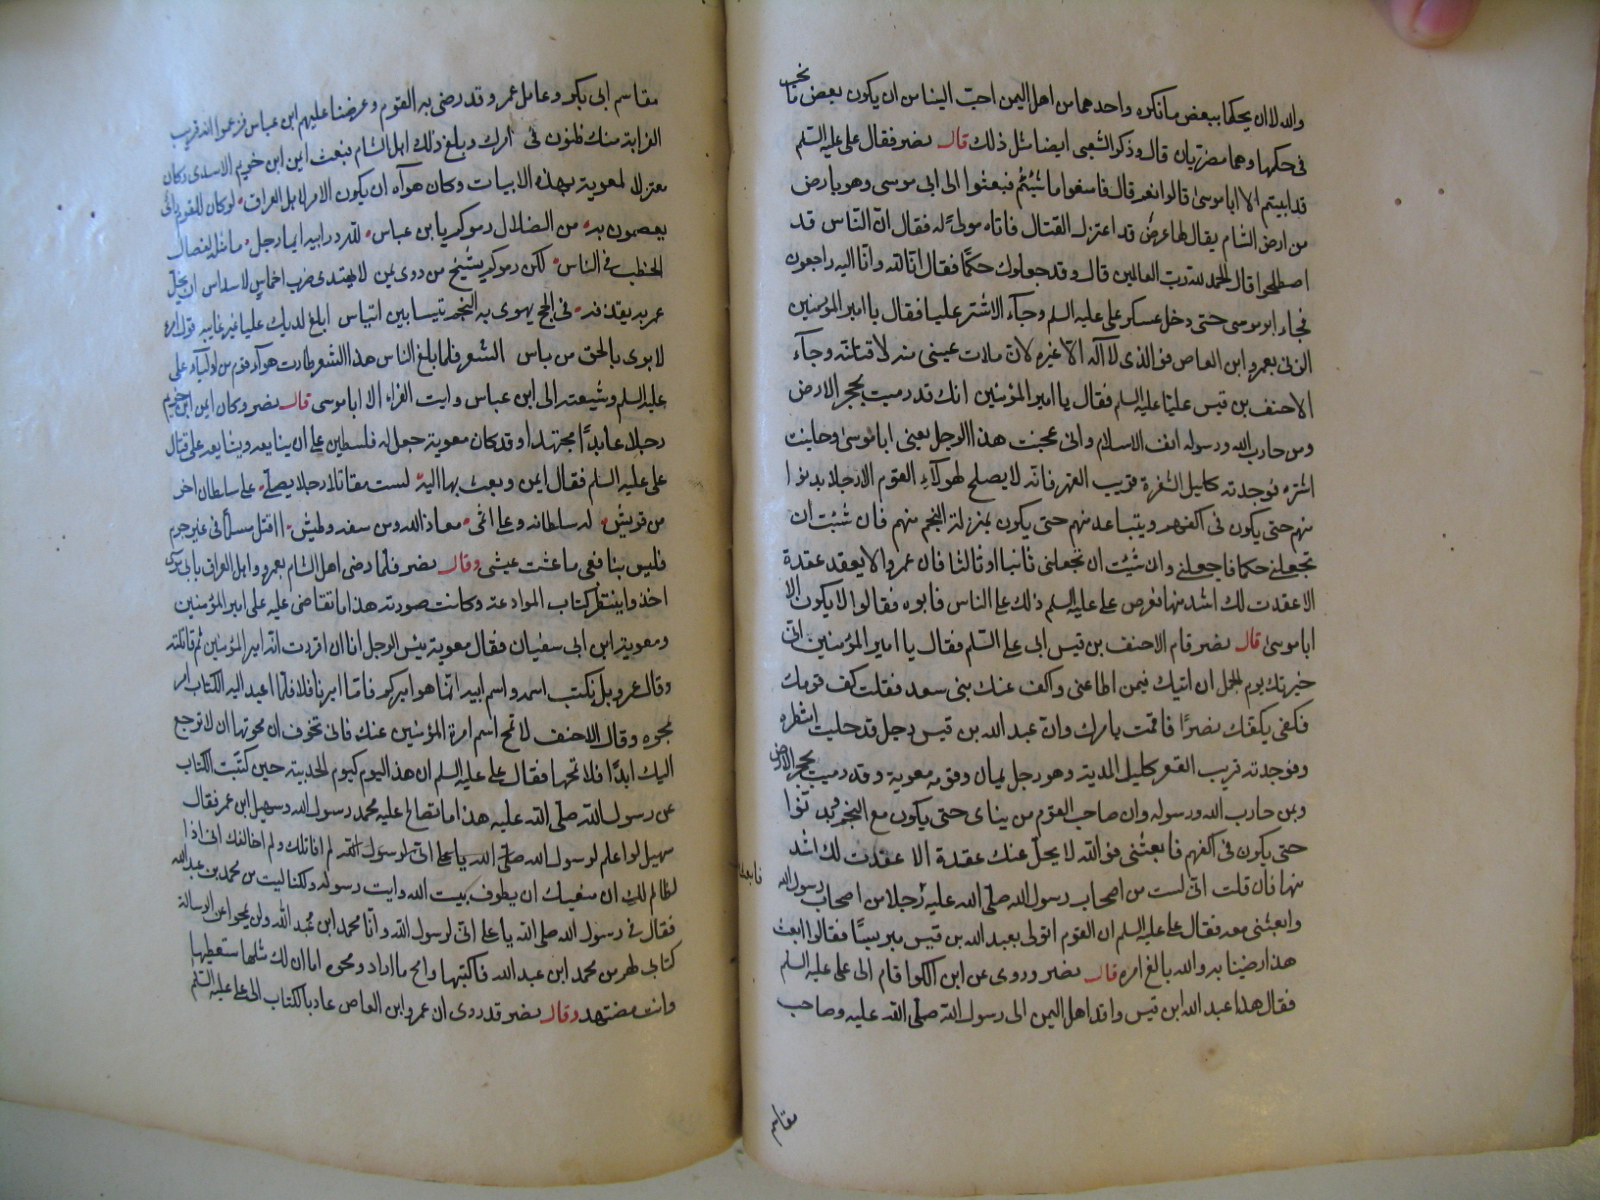 والله لاان يحكما ببعض مانكره واحدهما من اهل اليمن احبّ الينا من ان يكون بعض ما نحب
فى حكمها وهما مضريان قال وذكر الشعبى ايضا مثل ذلك قال نصر فقال على عليه السلم
قد ابيتم الا ابا موسى قالوا نعم قال فاصنعوا ما شئتم فبعثوا الى ابى موسى وهو بارض
من ارض الشام يقال لها عرض قد اعتزل القتال فاتاه مولى له فقال انّ الناس قد
اصطلحوا قال الحمد لله ربّ العالمين قال وقد جعلوك حكمًا فقال انا لله وانا اليه راجعون
فجاء ابو موسى حتى دخل عسكر على عليه السلم وجآء الاشتر عليا فقال يا امير المؤمنين
الزنى بعمرو ابن العاص فوالذى لا آله الا غيره لان ملات عينى منه لاقتلنه وجآء
الاحنف بن قيس عليّا عليه السلم فقال يا امير المؤمنين انك قد رميت بحجر الارض
ومن حارب الله ورسوله انف الاسلام وانى عجنت هذا الرجل يعنى ابا موسى وحلبت
اشتره فوجدته كليل الشفرة قريب القعر فانه لا يصلح لهولآء القوم الا رجلا يدنوا
منهم حتى يكون فى اكفهم ويتباعد منهم حتى يكون بمنزلة النجم منهم فان شئت ان
تجعلنى حكما فاجعلنى وان شئت ان تجعلنى ثانيا او ثالثا فان عمروا لا يعقد عقدة
الا عقدت لك اشد منها فعرض على عليه السلم ذلك على الناس فابوه فقالوا لا يكون الا
ابا موسى قال نصر فقام الاحنف بن قيس الى على السّلم فقال يا امير المؤمنين انّى
خيرتك يوم الجمل ان اتيك فيمن اطاعنى واكف عنك بنى سعد فقلت كف قومك
فكفى بكفك نصرًا فاقمت بامرك وان عبد الله بن قيس رجل قد حلبت اشطره
وفوجدته قريب القعر كليل المدية وهو رجل يمان وقومه معوية وقد رميت بحجر الارض
وبمن حارب الله ورسوله وان صاحب القوم من يناى حتى يكون مع النجم ويدنوا
حتى يكون فى اكفهم فابعثنى فوالله لا يحلّ عنك عقدة الا عقدت لك اشد
منها فان قلت انّى لست من اصحاب رسول الله صلّى الله عليه رجلا من اصحاب رسول الله
فابعث
وابعثنى معه فقال على عليه السلم ان القوم اتونى بعبد الله بن قيس مبرنسًا فقالوا ابعث
هذا رضينا به والله بالغ امره قال نصر وروى عن ابن الكوا قام الى على عليه السلم
فقال هذا عبد الله ابن قيس وافد اهل اليمن الى رسول الله صلّى الله عليه وصاحب
مقاسم
مقاسم ابى بكر وعامل عمر وقد رضى به القوم وعرضنا عليهم ابن عباس فزعموا انه قريب
القرابة منك ظنون فى امرك وبلغ ذلك اهل الشام فبعث ايمن ابن خريم الاسدى وكان
معتزلا لمعوية بهذه الابيات وكان هوآه ان يكون الامر لاهل العراق لو كان للقوم راى
يعصمون به من الضلال رموكم يا بن عباس لله در ابيه ايما رجل ما مثله لفصال
الخطب فى الناس لكن رموكم بشيخ من ذوى يمن لا يهتدى ضرب اخماس لاسداس ان يخل
عمرو به يقذفنه فى لجج يهوى به النجم تيسا بين اتياس ابلغ لديك عليا غير عايبه قول امرء
لا يرى بالحق من باس الشعر فلما بلغ الناس هذا الشعر طارت هوآء قوم من اوليآء على
عليه السلم وشيعته الى ابن عباس وابت القراء الا ابا موسى قال نصر وكان ايمن ابن خريم
رجلا عابدًا مجتهدا وقد كان معوية جعل له فلسطين على ان يتابعه ويشايعه على قتال
على عليه السلم فقال ايمن وبعث بها اليه لست مقاتلا رجلا يصلى على سلطان اخر
من قريش له سلطانه وعلى اثمى معاذ الله من سفه وطيش ااقتل مسلما فى غير جرم
فليس بنافعى ما عشت عيشى وقال نصر فلما رضى اهل الشام بعمرو واهل العراق بابى موسى
اخذوا ينتظر كتاب الموادعة وكانت صورته هذا ما تقاضى عليه على امير المؤمنين
ومعوية ابن ابى سفيان فقال معوية بئس الرجل انا ان اقررت انه امير المؤمنين ثم قاتلته
وقال عمرو بل نكتب اسمه واسم ابيه انما هو اميركم فاما اميرنا فلا فلمّا اعيد اليه الكتاب امر
بمحوه وقال الاحنف لا تمح اسم امرة المؤمنين عنك فانى تخوف ان محوتها ان لا ترجع
اليك ابدًا فلا تمحها فقال على عليه السلم ان هذا اليوم كيوم الحديبية حين كتبت الكتاب
عن رسول الله صلّى الله عليه هذا ما تصالح عليه محمد رسول الله وسهيل ابن عمر فقال
سهيل لو اعلم لرسول الله صلّى الله يا على انّى لرسول الله لم اقاتلك ولم اخالفك انى اذا
لظالم لك ان منعتك ان يطوف ببيت الله وانت رسوله ولكنا ليت من محمد بن عبد الله
فقال لى رسول الله صلى الله يا على انّى لرسول الله وانا محمد ابن عبد الله ولن يمحوا عنى الرسالة
كتابى لهم من محمد ابن عبد الله فاكتبها وامح ما اراد ومحوه اما ان لك مثلها ستعطيها
وانت مضتهد وقال نصر قد روى ان عمرو ابن العاص عاد بالكتاب الى على عليه السّلم